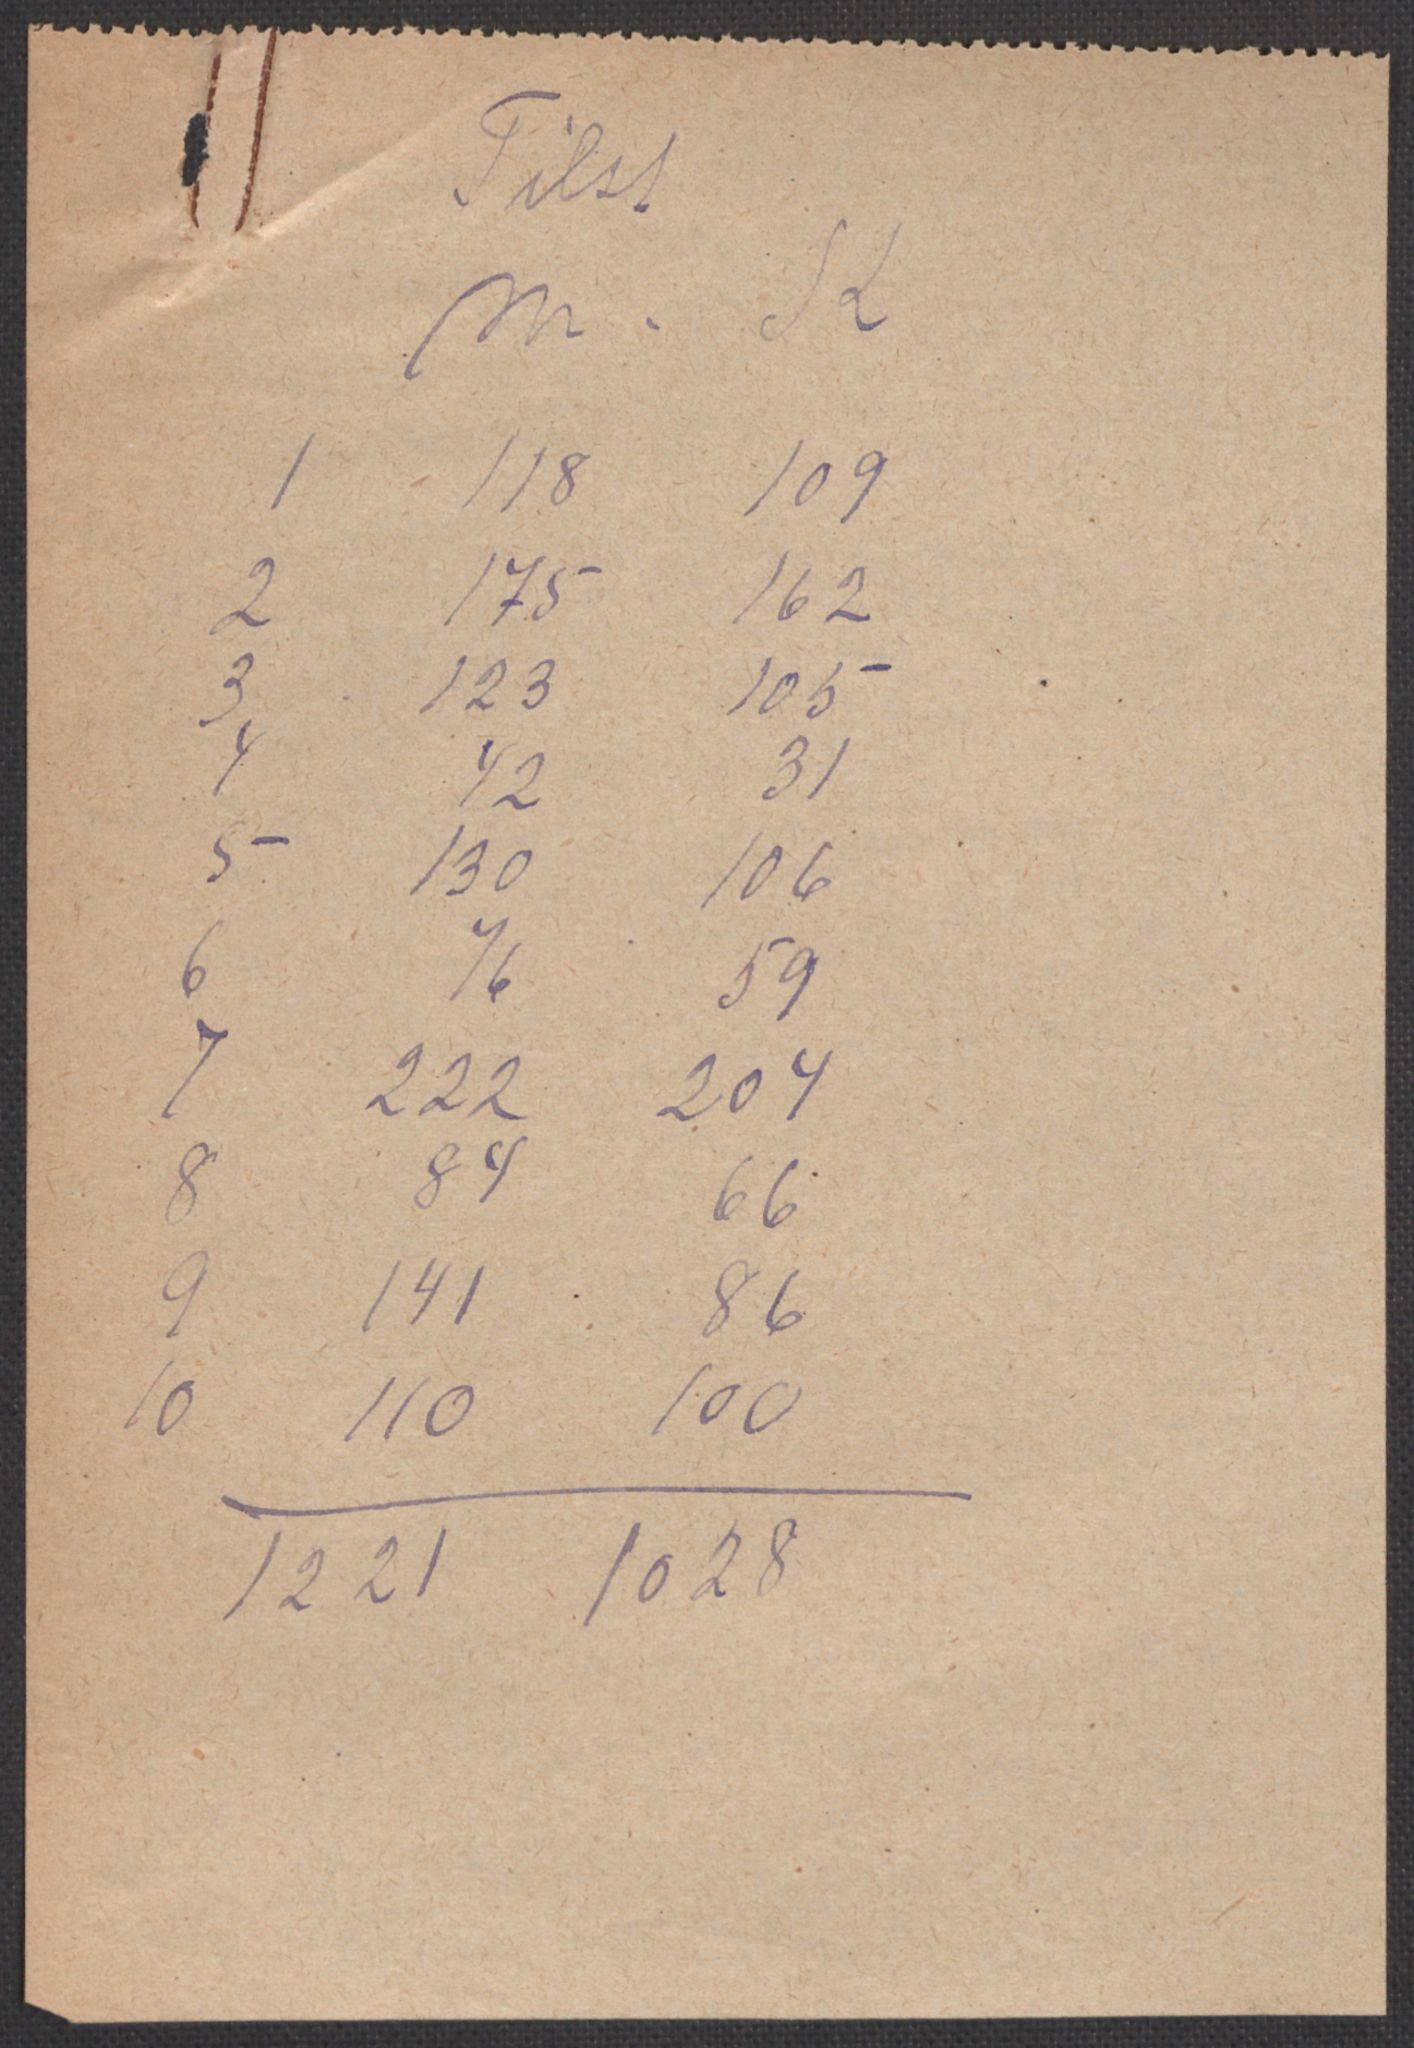 Tilst
M. K
1 118 109
2 175 162
3 123 105
4 42 31
5 130 106
6 76 59
7 222 204
8 84 66
9 141 86
10 110 100
1221 1028